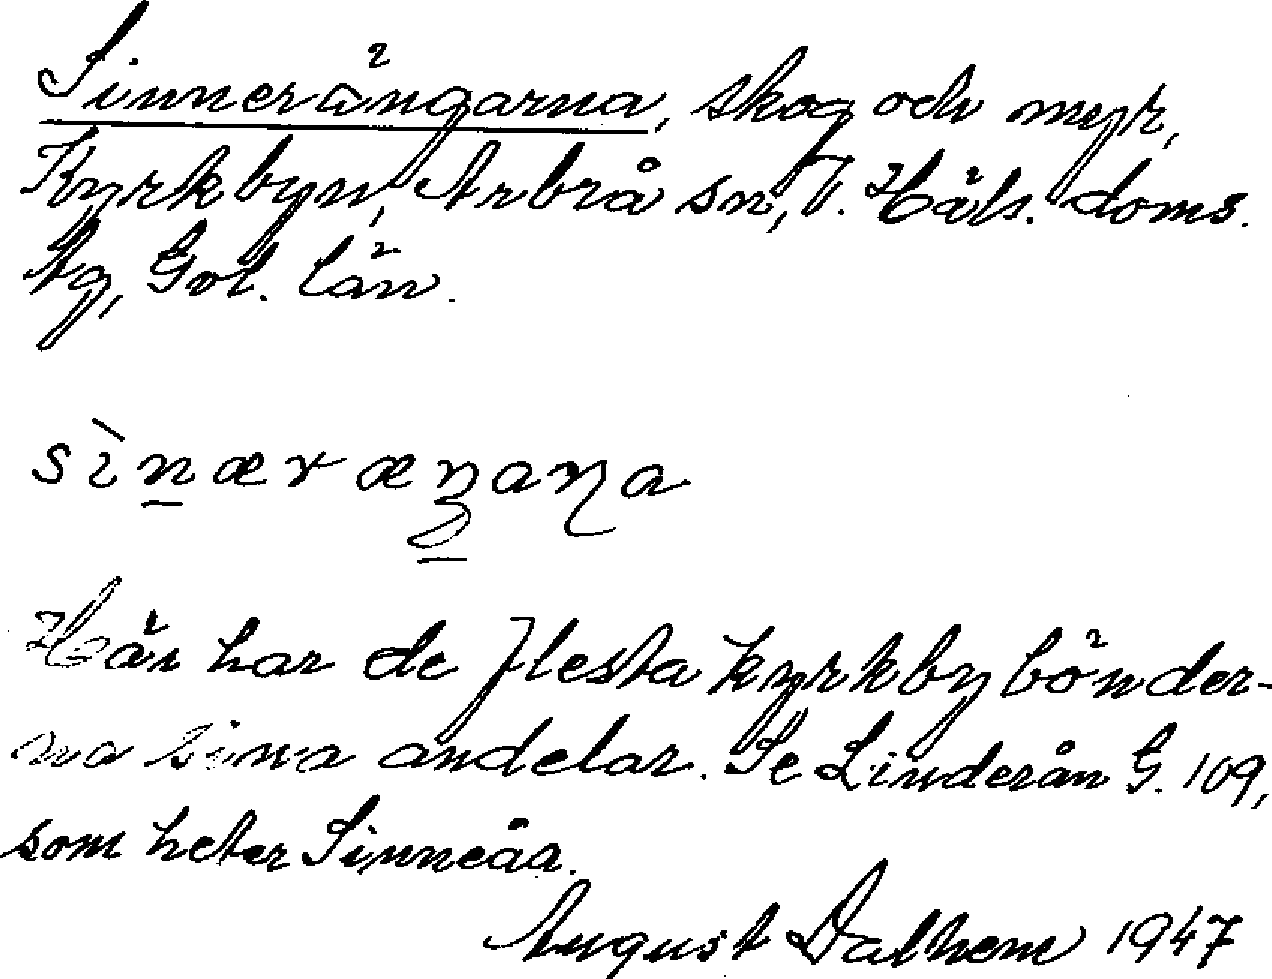 Sinnerängarna, skog och myr,
Kyrkbyn, Arbrå sn, V. Häls. doms.
Ag, Gvl. län.
sìnæræŋana
Här har de flesta kyrkbybönder-
na sina andelar. Se Linderån G. 109,
som heter Sinneåa.
August Dalhem 1947